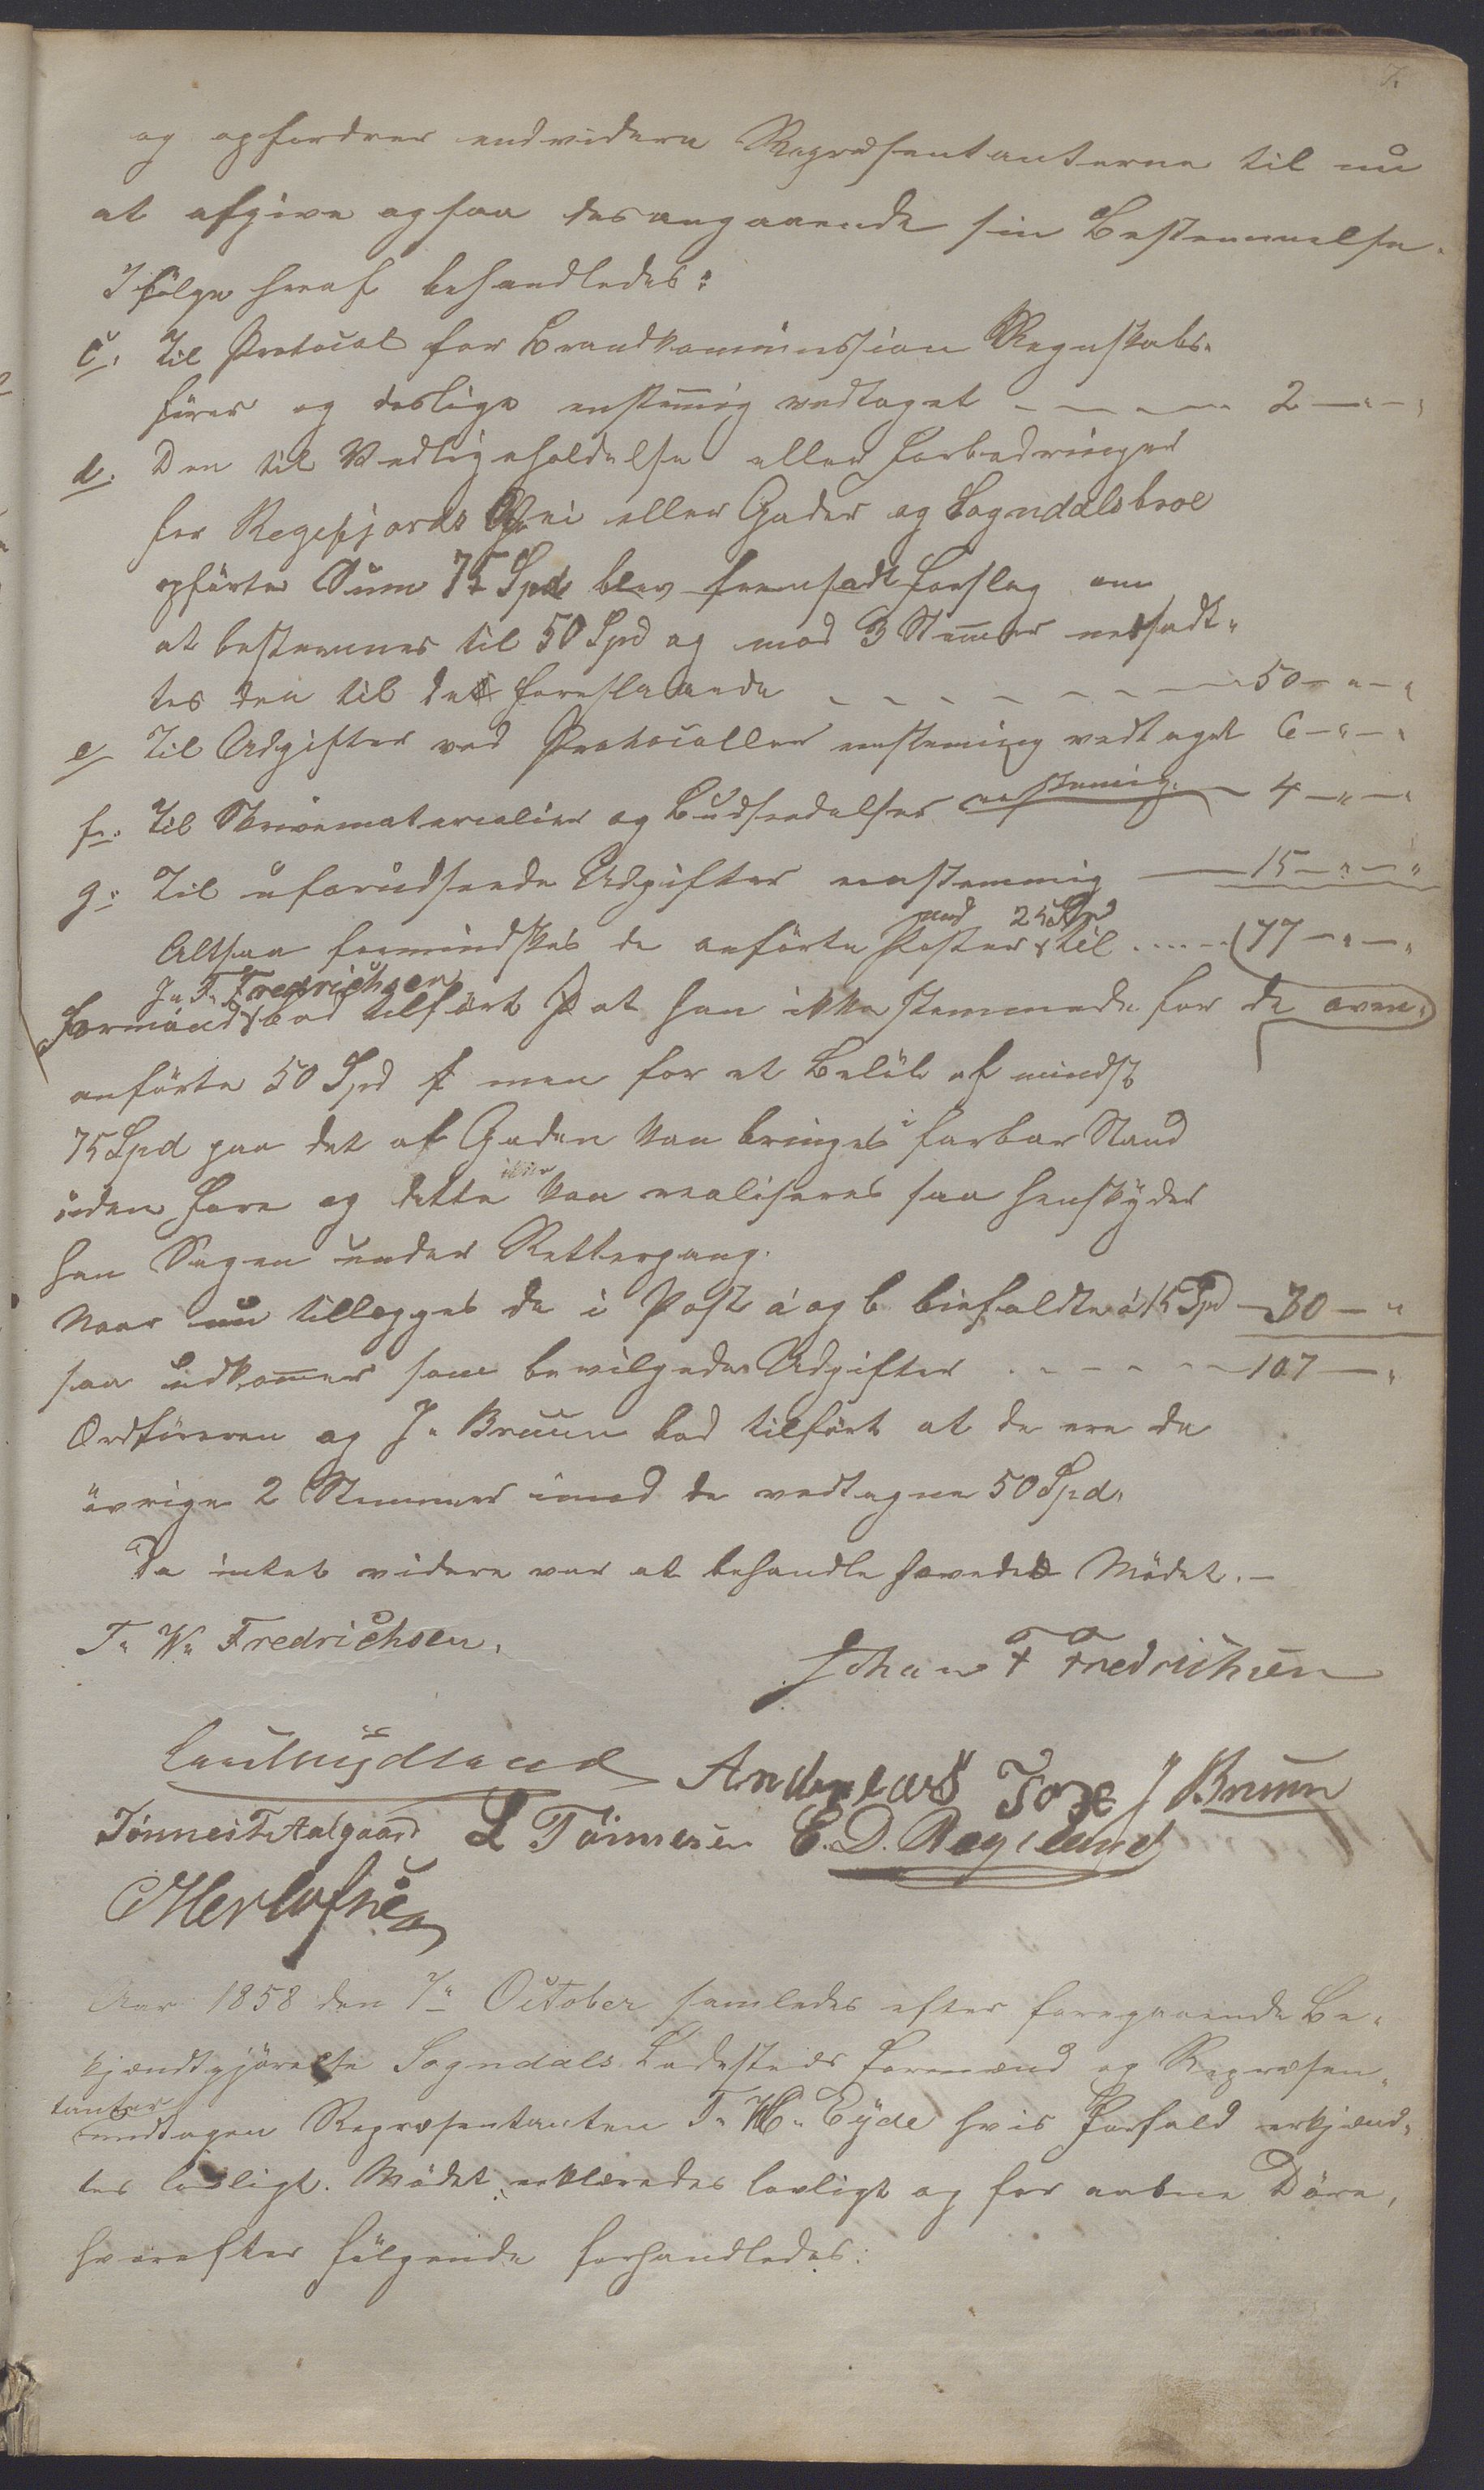 7.
og opfordrer endvidere Repræsentanterne til nu
at afgive ogsaa desangaaende sin Bestemmelse.
Ifølge heraf behandledes:
c: Til Protocol for Brandkommission Regnskabs-
fører og deslige enstem̅ig vedtaget - - - - 2 - " - "
d. Den til Vedligeholdelse eller Forbedringer
for Regefjords Vei eller Gader og Sogndalsbroe
opførte Sum 75 Spd blev fremsadt Forslag om
at bestemmes til 50 Spd og mod 3 Stem̅er nedsadt-
tes den til det foreslaaede - - - - - - - 50 - " - "
e Til Udgifter ved Protocoller enstemmig vedtaget 6 - " - "
f: Til Skrivematerialier og Budsendelser enstemmig. - 4 - " - "
g: Til uforudseende Udgifter enstemmig - 15 - " - "
med 25 Spd
Altsaa formindskes de anførte Poster til ..... 77 - " - "
J. F. Fredrichsen
Formand bad tilført at han ikke stemmede for de oven-
anførte 50 Spd men for et Beløb af mindst
75 Spd paa det at Gaden kan bringes i farbar Stand
uden Fare og dette ikke kan realiseres saa henskyder
han Sagen under Rettergang.
Naar nu tillægges de i Post a og b bifaldte á 15 Spd - 30 - "
saa udkom̅er som bevilgede Udgifter . - - - - 107 - "
Ordføreren og J. Bruun bad tilført at de ere de
øvrige 2 Stemmer imod de vedtagne 50 Spd.
Da intet videre var at behandle hævedes Mødet. -
T. W. Fredrichsen.
Johan F Fredrichsen
Andreas Tore J Bruun
Tønnes T. Aalgaard L Tönnesen E. D. Regelund
Herlofsen
Aar 1858 den 7" October samledes efter foregaaende Be-
kjendtgjørelse Sogndals Ladesteds Formænd og Repræsen-
tanter
undtagen Repræsentanten T. H. Eÿde hvis Forfald erkjend-
tes lovligt. Mødet erklæredes lovligt og for aabne Døre,
hvorefter følgende forhandledes: